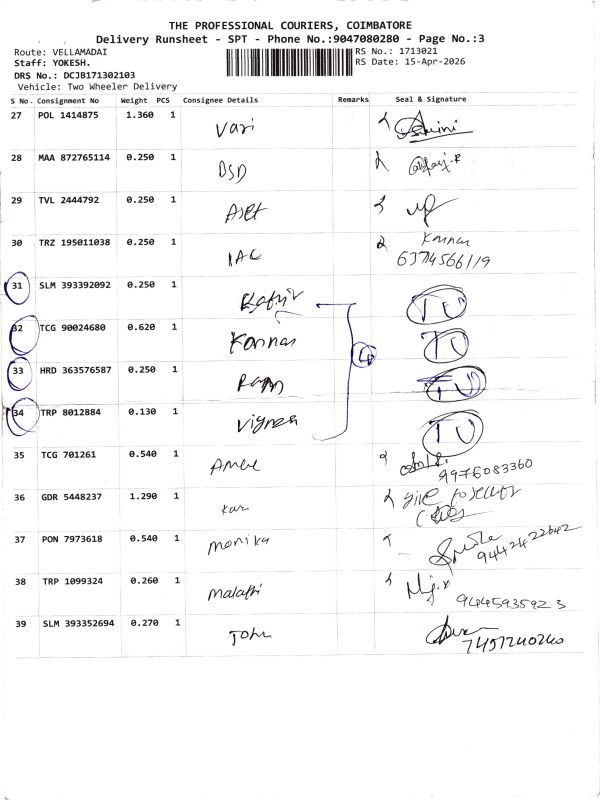 THE PROFESSIONAL COURIERS, COIMBATORE
Delivery Runsheet - SPT - Phone No.:9047080280 - Page No.:3
Route: VELLAMADAI
RS No.: 1713021
Staff: YOKESH.
RS Date: 15-Apr-2026
DRS No.: DCJB171302103
Vehicle: Two Wheeler Delivery
S No. Consignment No Weight PCS Consignee Details Remarks Seal & Signature
27 POL 1414875 1.360 1 Vari
28 MAA 872765114 0.250 1 DSD
29 TVL 2444792 0.250 1
30 TRZ 195011038 0.250 1 IAC Kannan
6374566119
31 SLM 393392092 0.250 1 TU
32 TCG 90024680 0.620 1 Kannan TU
33 HRD 363576587 0.250 1 TU
34 TRP 8012884 0.130 1 Vignesh TU
35 TCG 701261 0.540 1
9976083360
36 GDR 5448237 1.290 1 Kar give
37 PON 7973618 0.540 1 Monika
9442422642
38 TRP 1099324 0.260 1
9445935923
39 SLM 393352694 0.270 1 John
7457240240